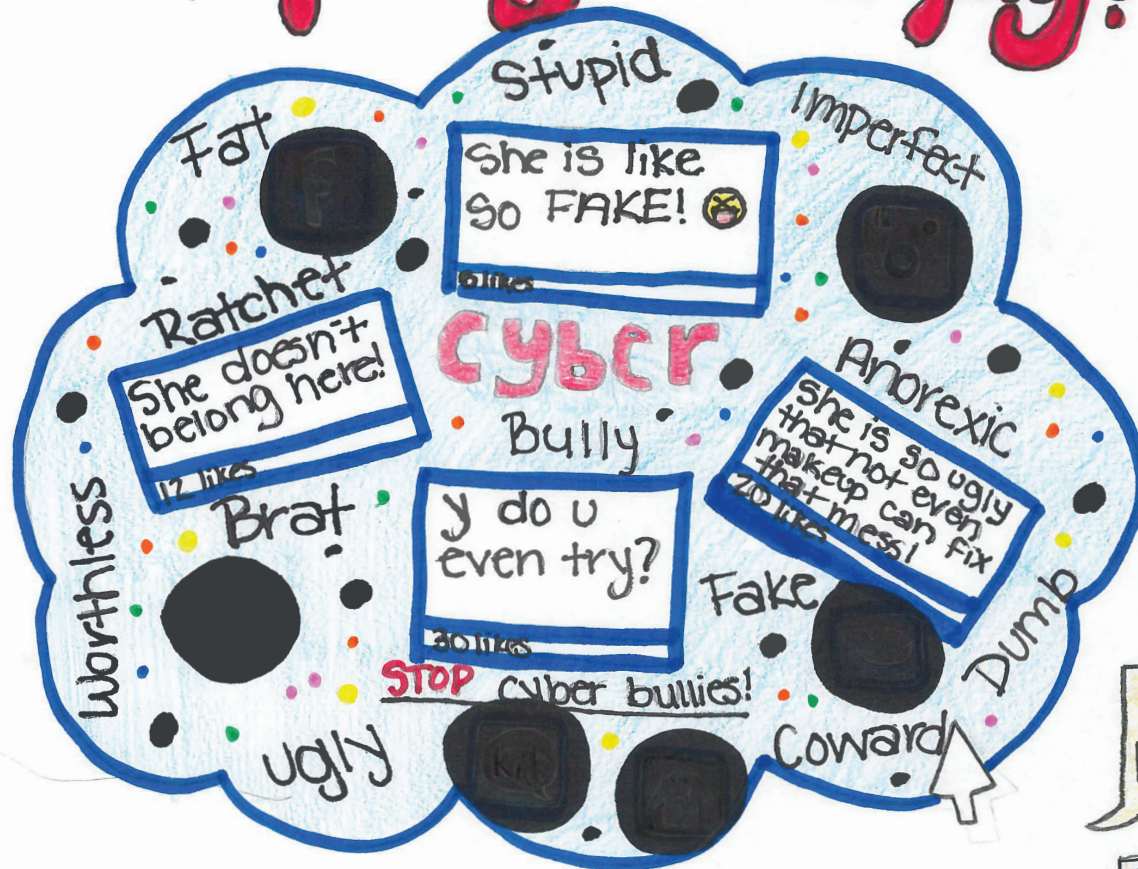 Stupid
Imperfect
Fat
She is like
so FAKE!
6 likes
Ratchet
She doesn't
belong here!
12 likes
Cyber
Bully
Anorexic
She is so ugly
that not even
makeup can fix
that mess!
20 likes
Brat
y do u
even try?
30 likes
Worthless
Fake
Dumb
STOP cyber bullies!
ugly
Coward